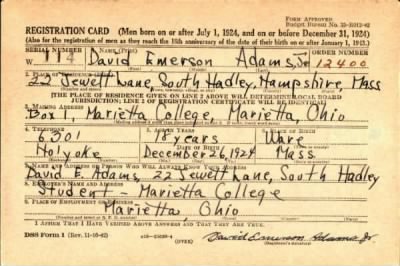 FORM APPROVED
REGISTRATION CARD (Men born on or after July 1, 1924, and on or before December 31, 1924)
(Also for the registration of men as they reach the 18th anniversary of the date of their birth on or after January 1, 1925.)
SERIAL NUMBER 1. NAME (Print) ORDER NUMBER
W. 114 David Emerson Adams, Jr 12400
2. PLACE OF RESIDENCE (Print)
22 Jewett Lane, South Hadley, Hampshire, Mass
[THE PLACE OF RESIDENCE GIVEN ON LINE 2 ABOVE WILL DETERMINE LOCAL BOARD
JURISDICTION; LINE 2 OF REGISTRATION CERTIFICATE WILL BE IDENTICAL]
3. MAILING ADDRESS
Box 1, Marietta College, Marietta, Ohio
4. TELEPHONE 5. AGE IN YEARS 6. PLACE OF BIRTH
301 18 years Ware
DATE OF BIRTH
Holyoke December 26, 1924 Mass.
7. NAME AND ADDRESS OF PERSON WHO WILL ALWAYS KNOW YOUR ADDRESS
David E. Adams, 22 Jewett Lane, South Hadley
8. EMPLOYER'S NAME AND ADDRESS
Student - Marietta College
9. PLACE OF EMPLOYMENT OR BUSINESS
Marietta, Ohio
I AFFIRM THAT I HAVE VERIFIED ABOVE ANSWERS AND THAT THEY ARE TRUE.
DSS Form 1 (OVER) David Emerson Adams Jr.